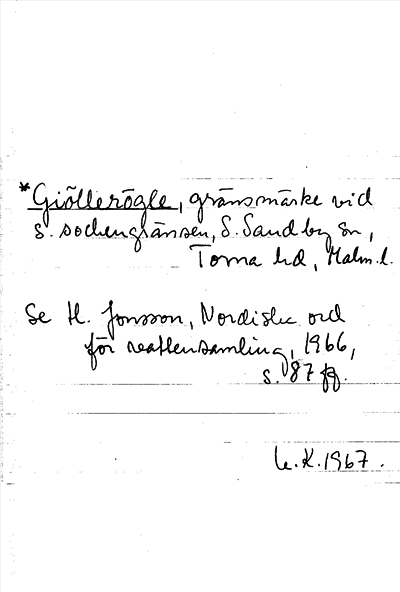 *Giöllerögle, gränsmärke vid
s. sockengränsen, S. Sandby sn,
Torna hd, Malm. l.
Se H. Jonsson, Nordiska ord
för vattensamling, 1966,
s. 87 ff.
K. 1967.